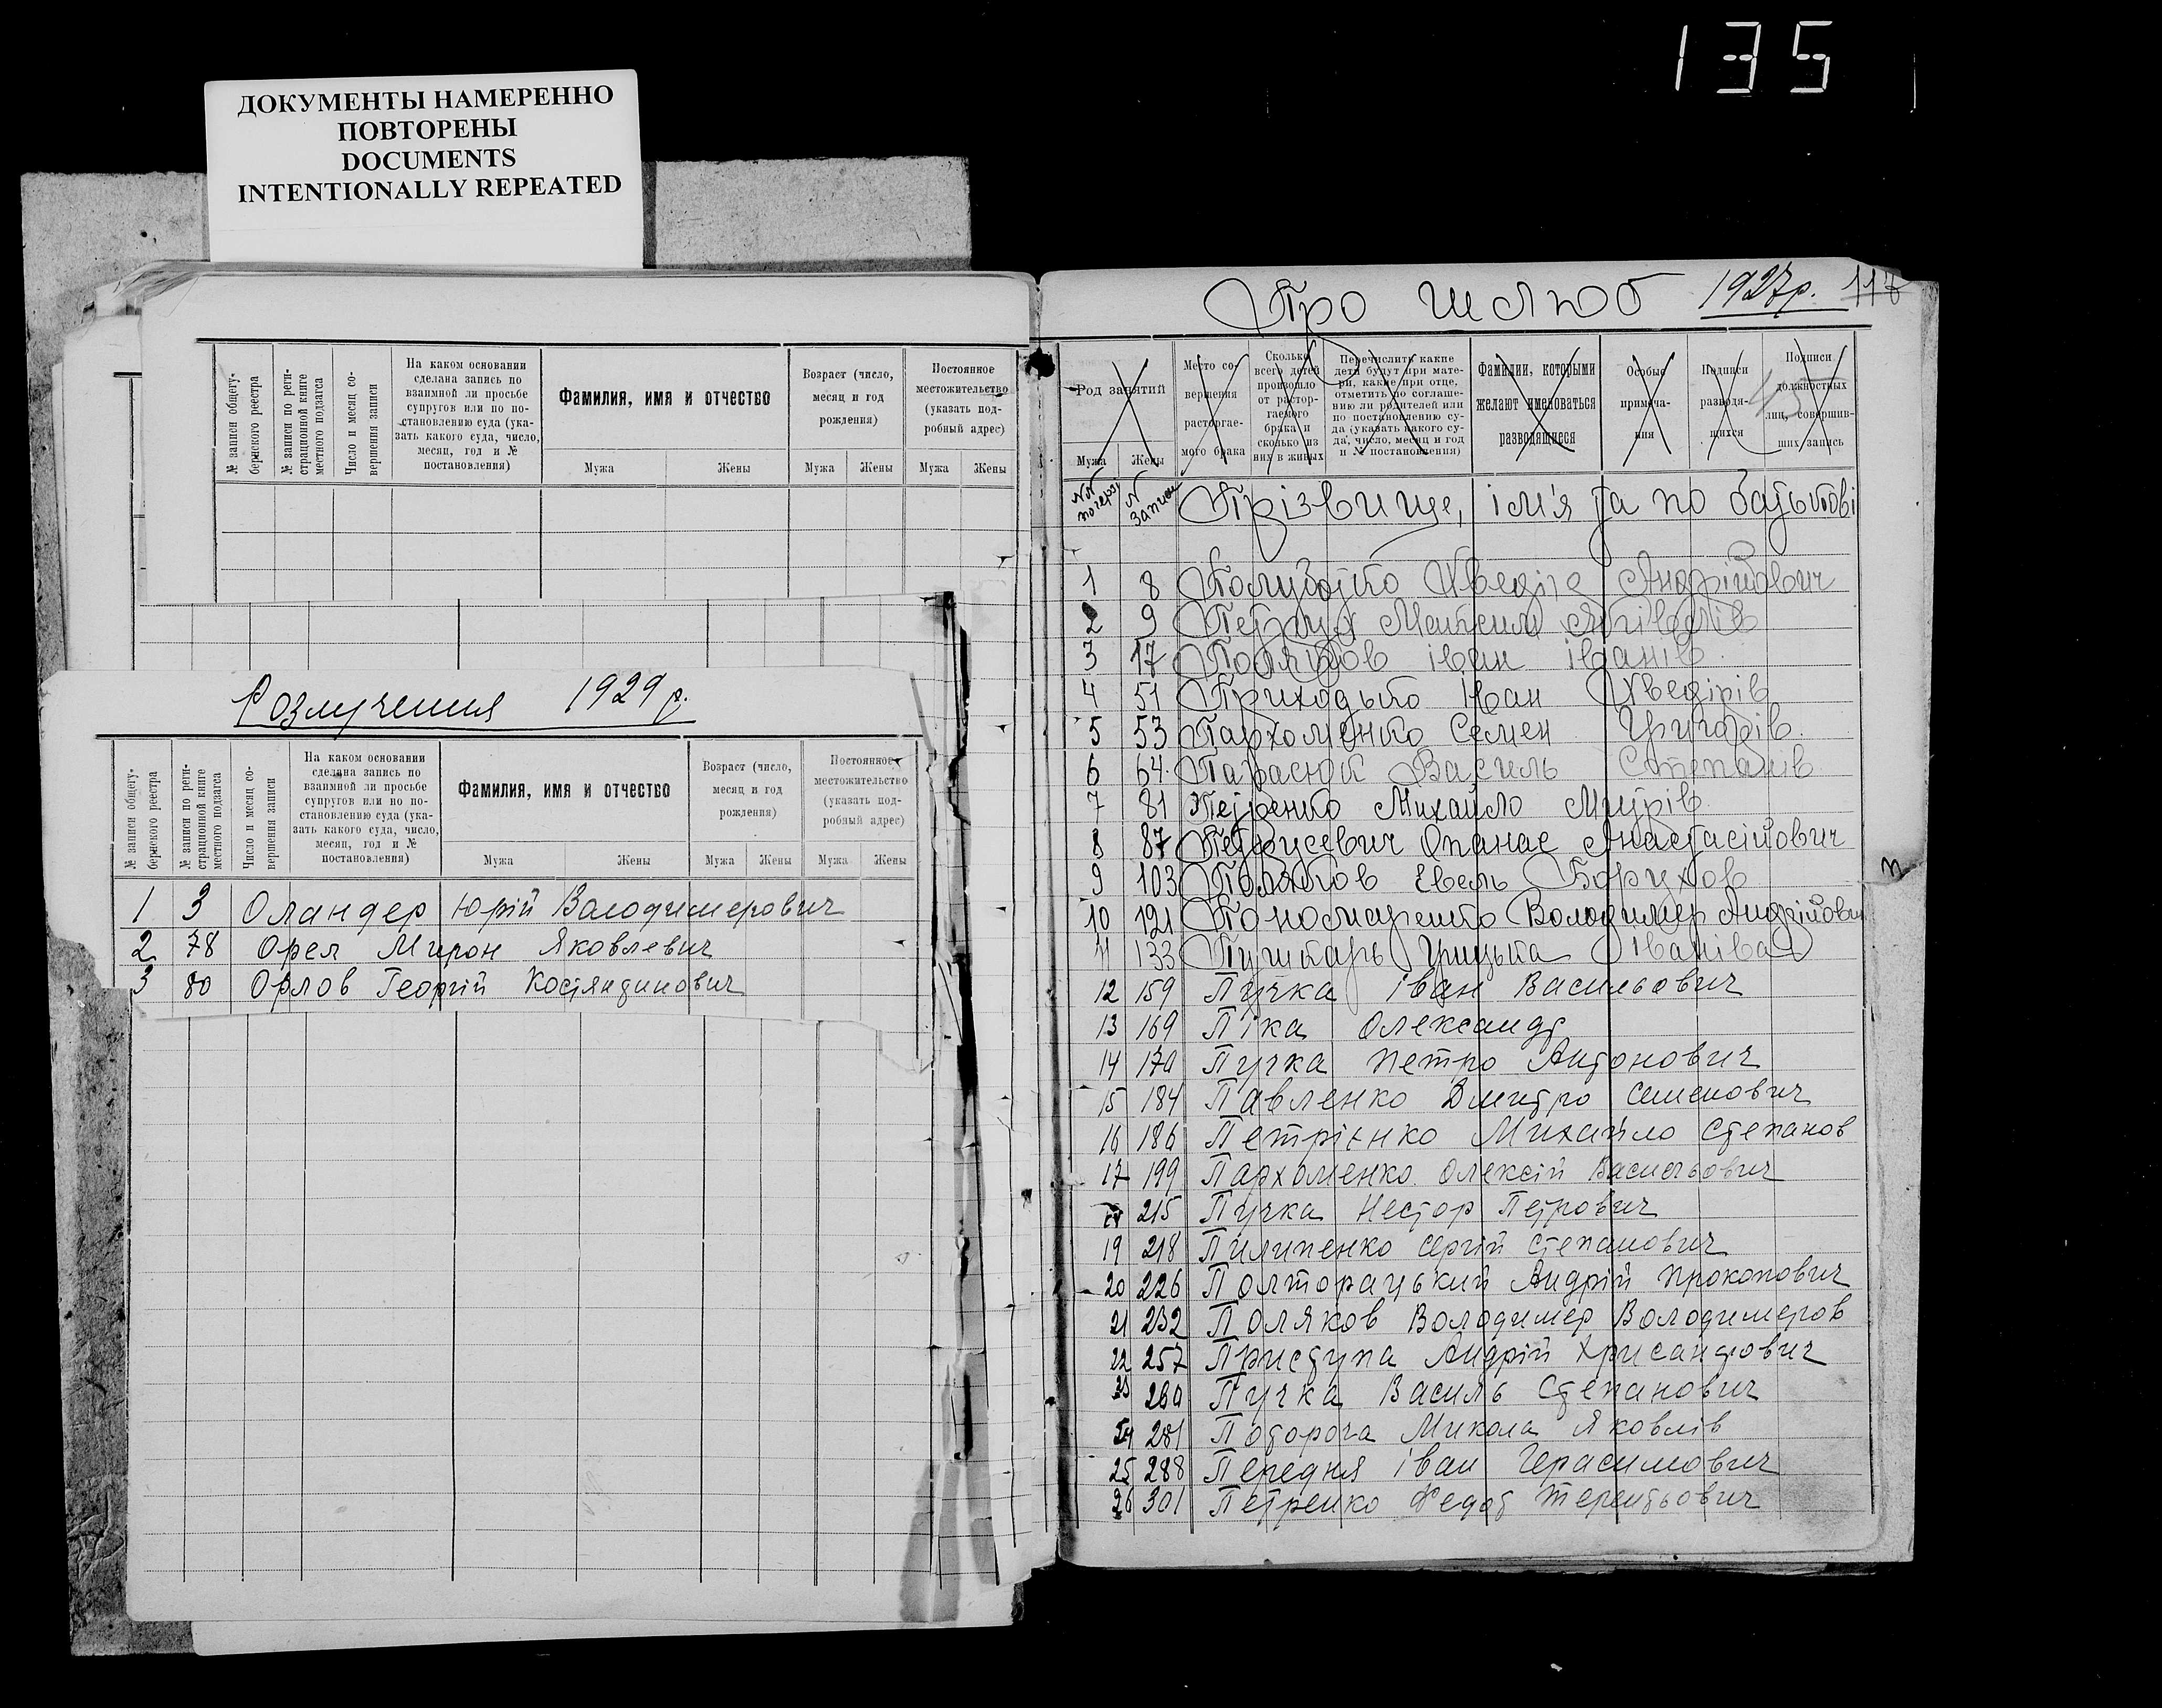 135
ДОКУМЕНТЫ НАМЕРЕННО
ПОВТОРЕНЫ
DOCUMENTS
INTENTIONALLY REPEATED
№ записи общегу-
бернского реестра
№ записи по реги-
страционной книге
местного подзагса
Число и месяц со-
вершения записи
На каком основании
сделана запись по
взаимной ли просьбе
супругов или по по-
становлению суда (ука-
зать какого суда, число,
месяц, год и №
постановления)
Фамилия, имя и отчество
Мужа Жены
Возраст (число,
месяц и год
рождения)
Мужа Жены
Постоянное
местожительство
(указать под-
робный адрес)
Мужа Жены
Розлучення 1929 р.
№ записи общегу-
бернского реестра
№ записи по реги-
страционной книге
местного подзагса
Число и месяц со-
вершения записи
На каком основании
сделана запись по
взаимной ли просьбе
супругов или по по-
становлению суда (ука-
зать какого суда, число,
месяц, год и №
постановления)
Фамилия, имя и отчество
Мужа Жены
Возраст (число,
месяц и год
рождения)
Мужа Жены
Постоянное
местожительство
(указать под-
робный адрес)
Мужа Жены
1 3 Оландер Юрій Володимерович
2 78 Орел Мирон Яковлевич
3 80 Орлов Георгій Костянтинович
Про шлюб 1927р. 117
Род занятий
Мужа Жены
Место со-
вершения
расторгае-
мого брака
Сколько
всего детей
произошло
от растор-
гаемого
брака и
сколько из
них в живых
Перечислить какие
дети будут при мате-
ри, какие при отце,
отметить по соглаше-
нию ли родителей или
по постановлению су-
да (указать какого су-
да, число, месяц и год
и № постановления)
Фамилии, которыми
желают именоваться
разводящиеся
Особые
примеча-
ния
Подписи
разводя-
щихся
Подписи
должностных
лиц, совершив-
ших запись
NN по черзі N записи Прізвище, ім'я та по батькові
1 8 Полуботко Хведір Андрійович
2 9 Петрица Максим Яківлів
3 17 Поляков Іван Іванів
4 51 Приходько Іван Хведірів
5 53 Пархоменко Семен Григорів
6 64 Парасюк Василь Степанів
7 81 Петренко Михайло Дмитрів
8 87 Петрусевич Опанас Анастасійович
9 103 Поляков Евель Борухов
10 121 Пономаренко Володимер Андрійович
11 133 Пушкарь Грицька Іванівна
12 159 Пучка Іван Васильович
13 169 Піка Олександр
14 170 Пучка Петро Антонович
15 184 Павленко Дмитро Семенович
16 186 Петрієнко Михайло Степанов
17 199 Пархоменко Олексій Васильович
18 215 Пучка Нестор Петрович
19 218 Пилипенко Сергій Степанович
20 226 Полторацький Андрій Прокопович
21 232 Поляков Володимер Володимеров
22 257 Приступа Андрій Хрисанфович
23 260 Пучка Василь Степанович
24 281 Поторога Микола Яковлів
25 288 Передня Іван Герасимович
26 301 Петренко Федот Терентьович
П